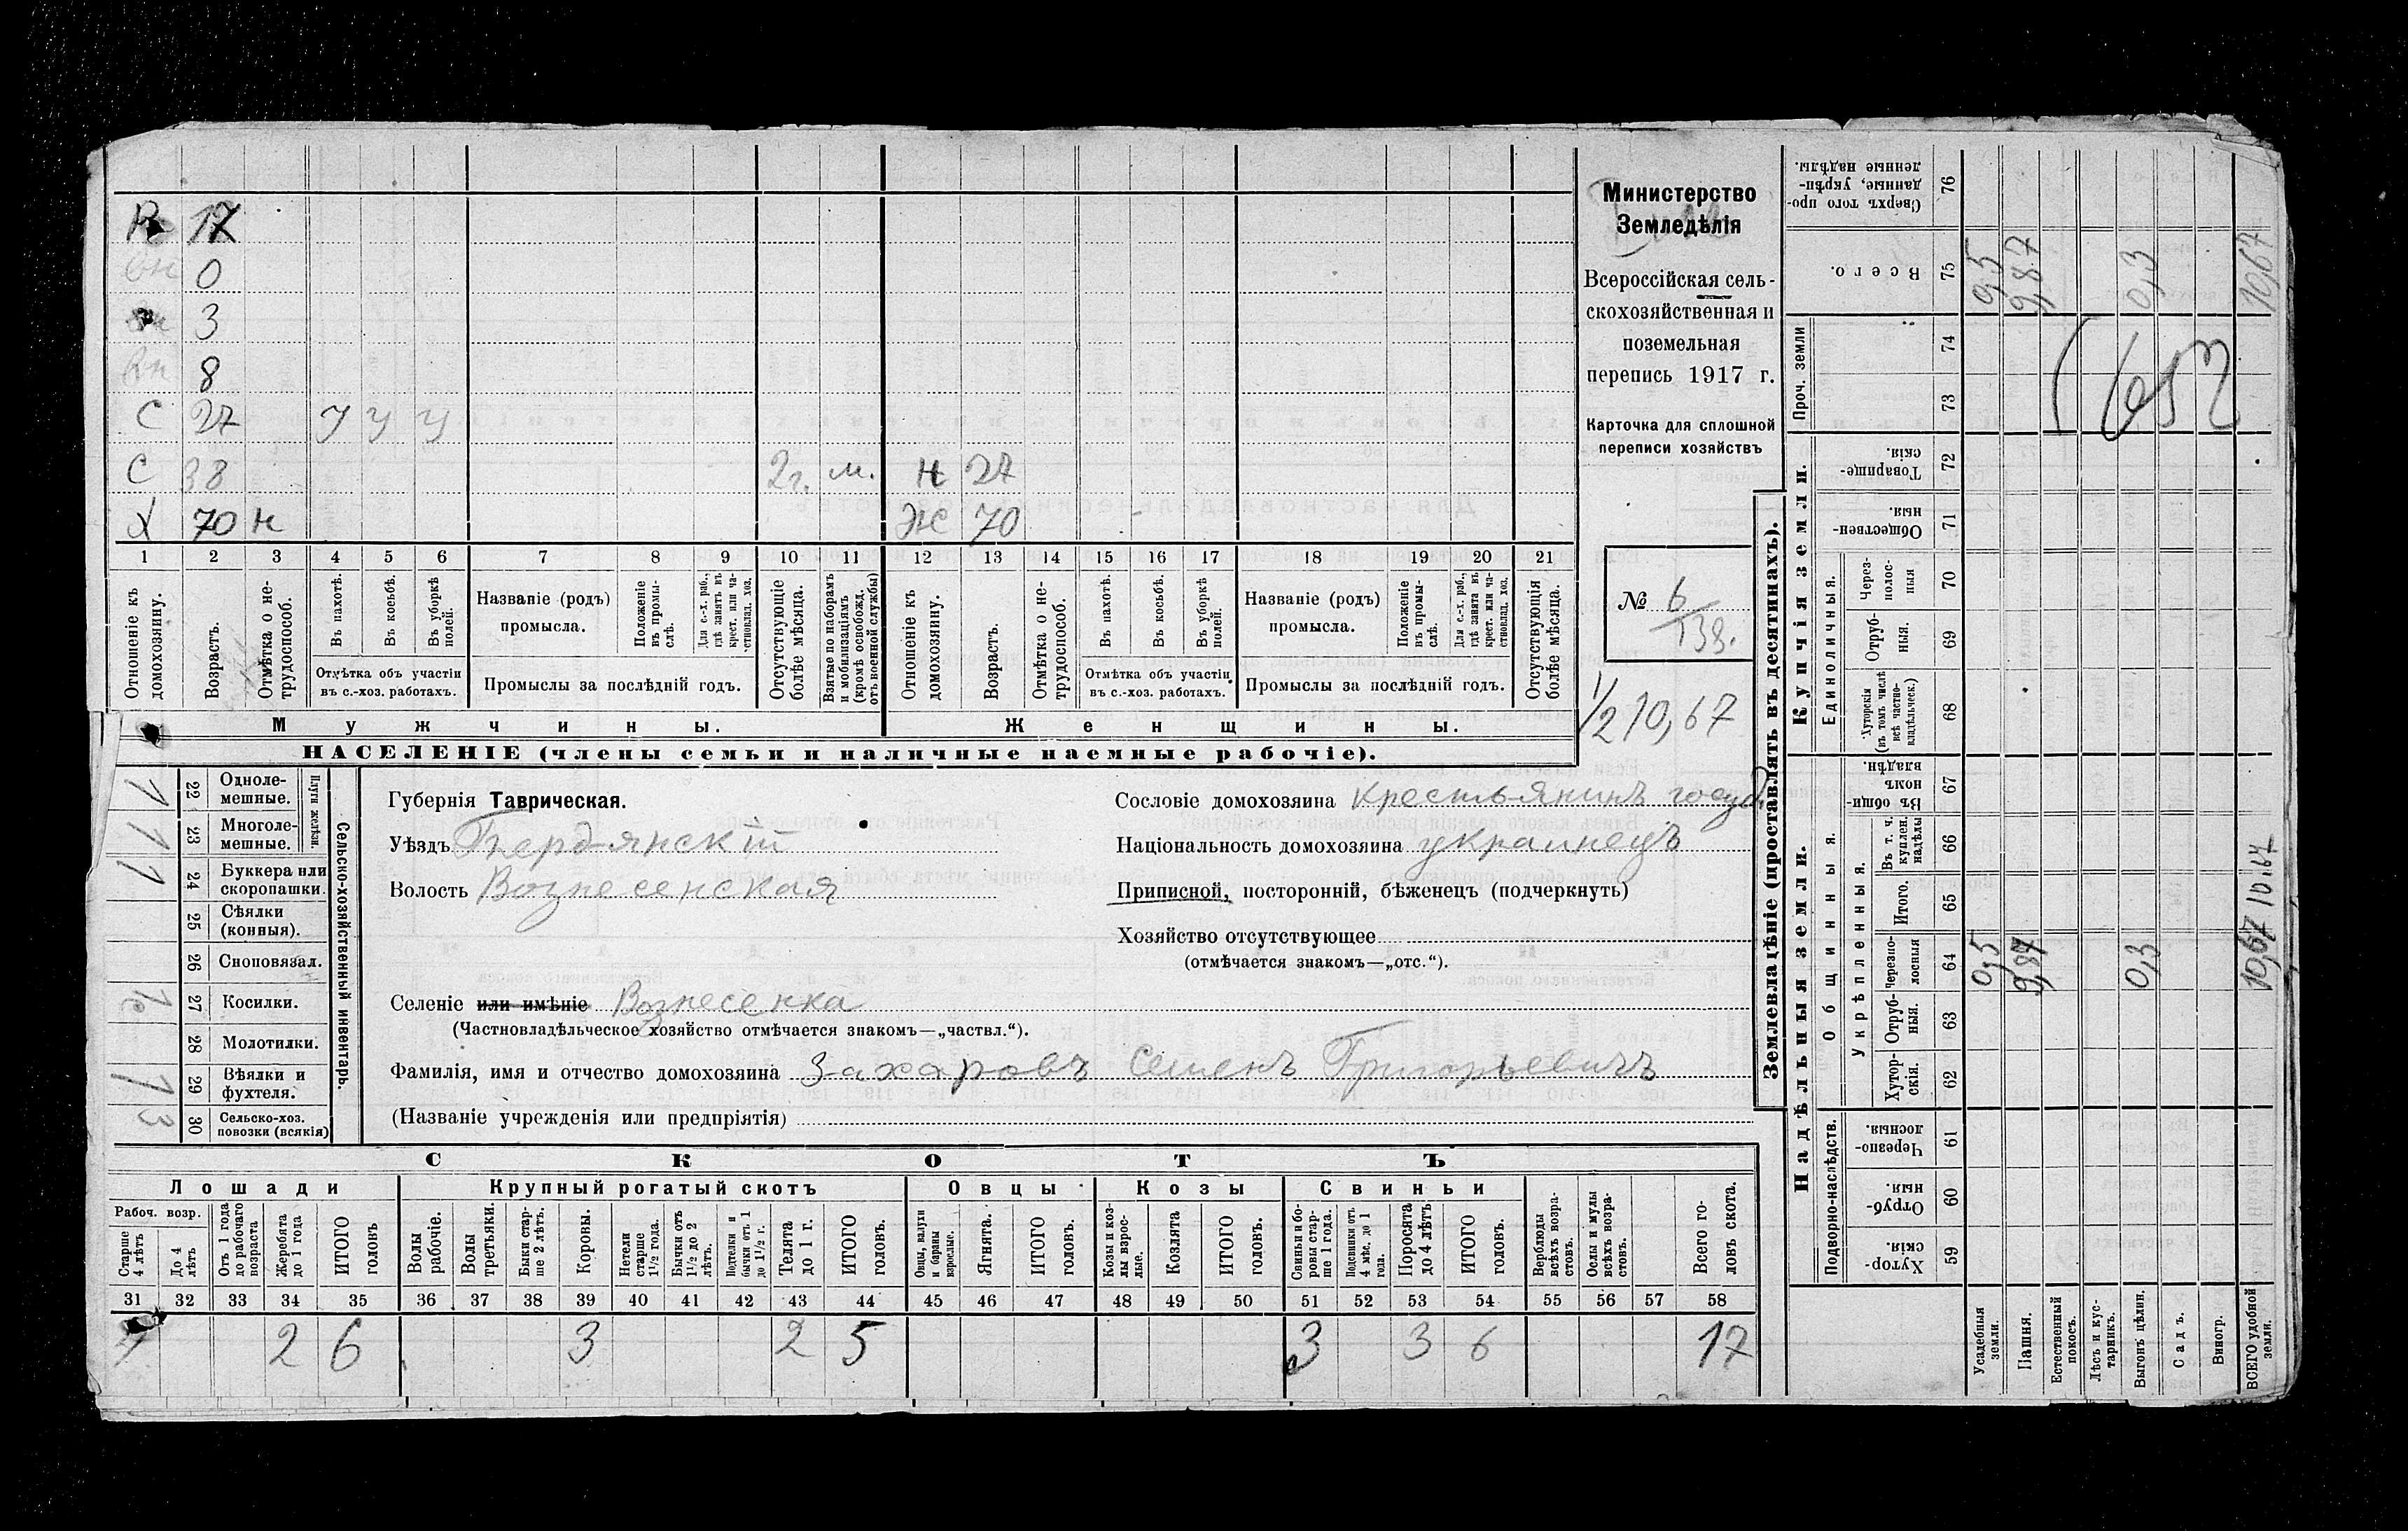 Министерство
Земледѣлія
Всероссійская сель-
скохозяйственная и
поземельная
перепись 1917 г.
Карточка для сплошной
переписи хозяйствъ
№ 6/138.
1/2 10,67
17
0
3
8
С 27 у у у
С 38 2г. м. Н 27
Х 70 н Ж 70
1 2 3 4 5 6 7 8 9 10 11 12 13 14 15 16 17 18 19 20 21
Отношеніе къ домохозяину.
Возрастъ.
Отмѣтка о не-трудоспособ.
Въ пахотѣ.
Въ косьбѣ.
Въ уборкѣ полей.
Отмѣтка объ участіи
въ с.-хоз. работахъ.
Названіе (родъ)
промысла.
Положеніе въ промы-слѣ.
Для с.-х. раб., гдѣ занятъ въ крест. или ча-стновлад. хоз.
Промыслы за послѣдній годъ.
Отсутствующіе болѣе мѣсяца.
Взятые по наборамъ и мобилизаціямъ (кромѣ освобожд. отъ военной службы)
Отношеніе къ домохозяину.
Возрастъ.
Отмѣтка о не-трудоспособ.
Въ пахотѣ.
Въ косьбѣ.
Въ уборкѣ полей.
Отмѣтка объ участіи
въ с.-хоз. работахъ.
Названіе (родъ)
промысла.
Положеніе въ промы-слѣ.
Для с.-х. раб., гдѣ занята въ крест. или ча-стновлад. хоз.
Промыслы за послѣдній годъ.
Отсутствующія болѣе мѣсяца.
Мужчины. Женщины.
НАСЕЛЕНІЕ (члены семьи и наличные наемные рабочіе).
Сельско-хозяйственный инвентарь.
Плуги желѣзн.
22 Одноле-мешные. 1
23 Многоле-мешные. 1
24 Буккера или скоропашки. 1
25 Сѣялки (конныя).
26 Сноповязал.
27 Косилки. 1с
28 Молотилки.
29 Вѣялки и фухтеля. 1
30 Сельско-хоз. повозки (всякія) 3
Губернія Таврическая.
Уѣздъ Бердянскій
Волость Вознесенская
Сословіе домохозяина крестьянинъ госуд.
Національность домохозяина украинецъ
Приписной, посторонній, бѣженецъ (подчеркнуть)
Хозяйство отсутствующее
(отмѣчается знакомъ—„отс.“).
Селеніе или имѣніе Вознесенка
(Частновладѣльческое хозяйство отмѣчается знакомъ—„частвл.“).
Фамилія, имя и отчество домохозяина Захаровъ Семенъ Григорьевичъ
(Названіе учрежденія или предпріятія)
СКОТЪ
Лошади Крупный рогатый скотъ Овцы Козы Свиньи
Рабоч. возр.
Старше 4 лѣтъ
До 4 лѣтъ
Отъ 1 года до рабочаго возраста
Жеребята до 1 года
ИТОГО головъ
Волы рабочіе.
Волы третьяки.
Быки стар-ше 2 лѣтъ.
Коровы.
Нетели старше 1½ года.
Бычки отъ 1½ до 2 лѣтъ.
Подтелки и бычки отъ 1 до 1½ г.
Телята до 1 г.
ИТОГО головъ.
Овцы, валухи и бараны взрослые.
Ягнята.
ИТОГО головъ.
Козы и коз-лы взрос-лые.
Козлята
ИТОГО головъ.
Свиньи и бо-ровы стар-ше 1 года.
Подсвинки отъ 4 мѣс. до 1 года.
Поросята до 4 лѣтъ
ИТОГО головъ.
Верблюды всѣхъ возра-стовъ.
Ослы и мулы всѣхъ возра-стовъ.
Всего го-ловъ скота.
31 32 33 34 35 36 37 38 39 40 41 42 43 44 45 46 47 48 49 50 51 52 53 54 55 56 57 58
4 2 6 3 2 5 3 3 6 17
Землевладѣніе (проставлять въ десятинахъ).
Купчія земли.
Надѣльныя земли.
Проч. земли
Единоличныя.
Общинныя.
Укрѣпленныя.
Подворно-наслѣдств.
76 Сверхъ того про-данные, укрѣп-ленные надѣлы.
75 Всего. 0,5 9,87 0,3 10,67
74
73
72 Товарище-скія.
71 Обществен-ныя.
70 Через-полос-ныя
69 Отруб-ныя.
68 Хуторскія (въ томъ числѣ всѣ частно-владѣльческ.)
67 Въ общи-номъ владѣн.
66 Въ т. ч. куплен. надѣлы
65 Итого.
64 Черезпо-лосныя 0,5 9,87 0,3 10,67 10,67
63 Отруб-ныя.
62 Хутор-скія.
61 Черезпо-лосныя
60 Отруб-ныя.
59 Хутор-скія.
Усадебныя земли.
Пашня.
Естественный покосъ.
Лѣсъ и кус-тарник.
Выгонъ цѣлин.
Садъ.
Виногр.
ВСЕГО удобной земли.